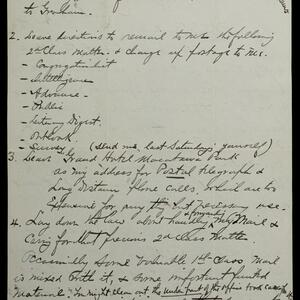 to Graham.
2. Leave directions to remail to me the following
2d Class Matter - & charge up postage to me.
- Congregationalist
- Intelligence
- Advance -
- Public
- Literary Digest.
- Outlook.
- Survey (Send me last Saturday's journal)
3. Leave Grand Hotel Mountain Park
as my address for Postal telegraph &
Long Distance phone calls, which are too
Expensive for any but necessary use.
4. Lay down the law about handling & forwarding my Mail &
Caring for that precious 2d Class Matter.
Occasionally some valuable 1st Class Mail
is mixed with it, & some important printed
Material.